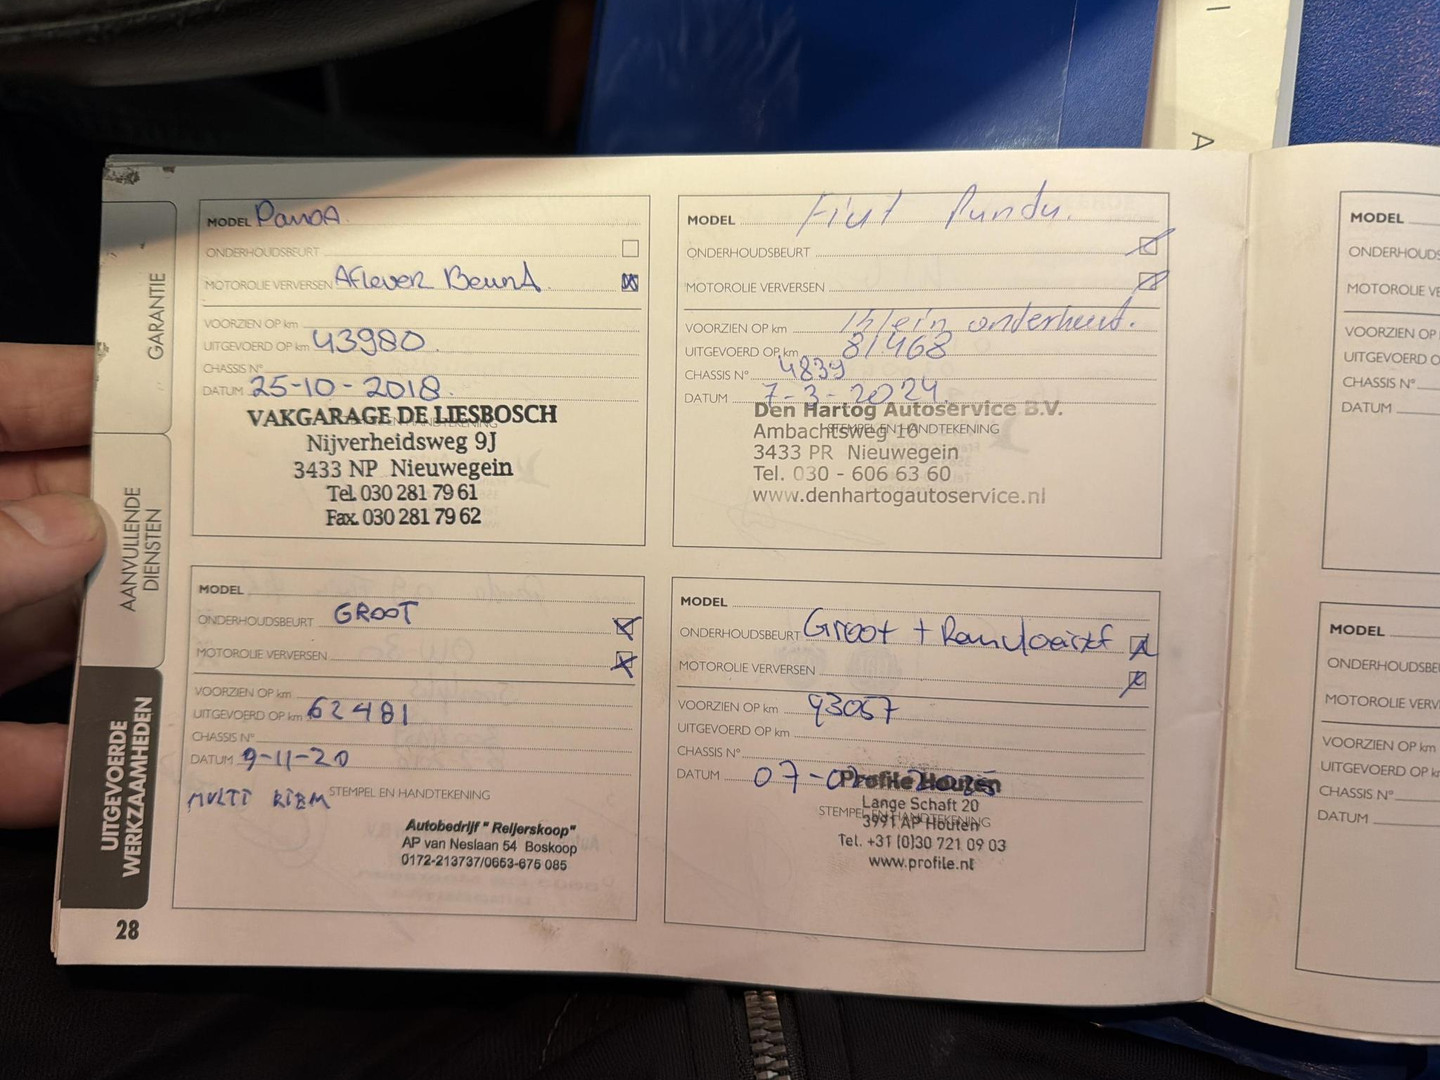 GARANTIE
AANVULLENDE
DIENSTEN
UITGEVOERDE
WERKZAAMHEDEN
28
MODEL PANDA.
ONDERHOUDSBEURT
MOTOROLIE VERVERSEN Aflever Beurt.
VOORZIEN OP km
UITGEVOERD OP km 43980.
CHASSIS N°
DATUM 25-10-2018.
VAKGARAGE DE LIESBOSCH
Nijverheidsweg 9J
3433 NP Nieuwegein
Tel. 030 281 79 61
Fax. 030 281 79 62
MODEL Fiat Panda.
ONDERHOUDSBEURT
MOTOROLIE VERVERSEN
VOORZIEN OP km Klein onderhoud.
UITGEVOERD OP km 81468
CHASSIS N° 4839
DATUM 7-3-2024.
STEMPEL EN HANDTEKENING
Den Hartog Autoservice B.V.
Ambachtsweg 16
3433 PR Nieuwegein
Tel. 030 - 606 63 60
www.denhartogautoservice.nl
MODEL
ONDERHOUDSBEURT GROOT
MOTOROLIE VERVERSEN
VOORZIEN OP km
UITGEVOERD OP km 62481
CHASSIS N°
DATUM 9-11-20
MULTI RIEM STEMPEL EN HANDTEKENING
Autobedrijf "Reijerskoop"
AP van Neslaan 54 Boskoop
0172-213737/0653-675 085
MODEL
ONDERHOUDSBEURT Groot + Remvloeistof
MOTOROLIE VERVERSEN
VOORZIEN OP km 93057
UITGEVOERD OP km
CHASSIS N°
DATUM 07-
STEMPEL EN HANDTEKENING
Profile Houten
Lange Schaft 20
3991 AP Houten
Tel. +31 (0)30 721 09 03
www.profile.nl
MODEL
MOTOROLIE
VOORZIEN OP
UITGEVOERD
CHASSIS N°
DATUM
MODEL
MOTOROLIE
VOORZIEN OP km
UITGEVOERD OP
CHASSIS N°
DATUM